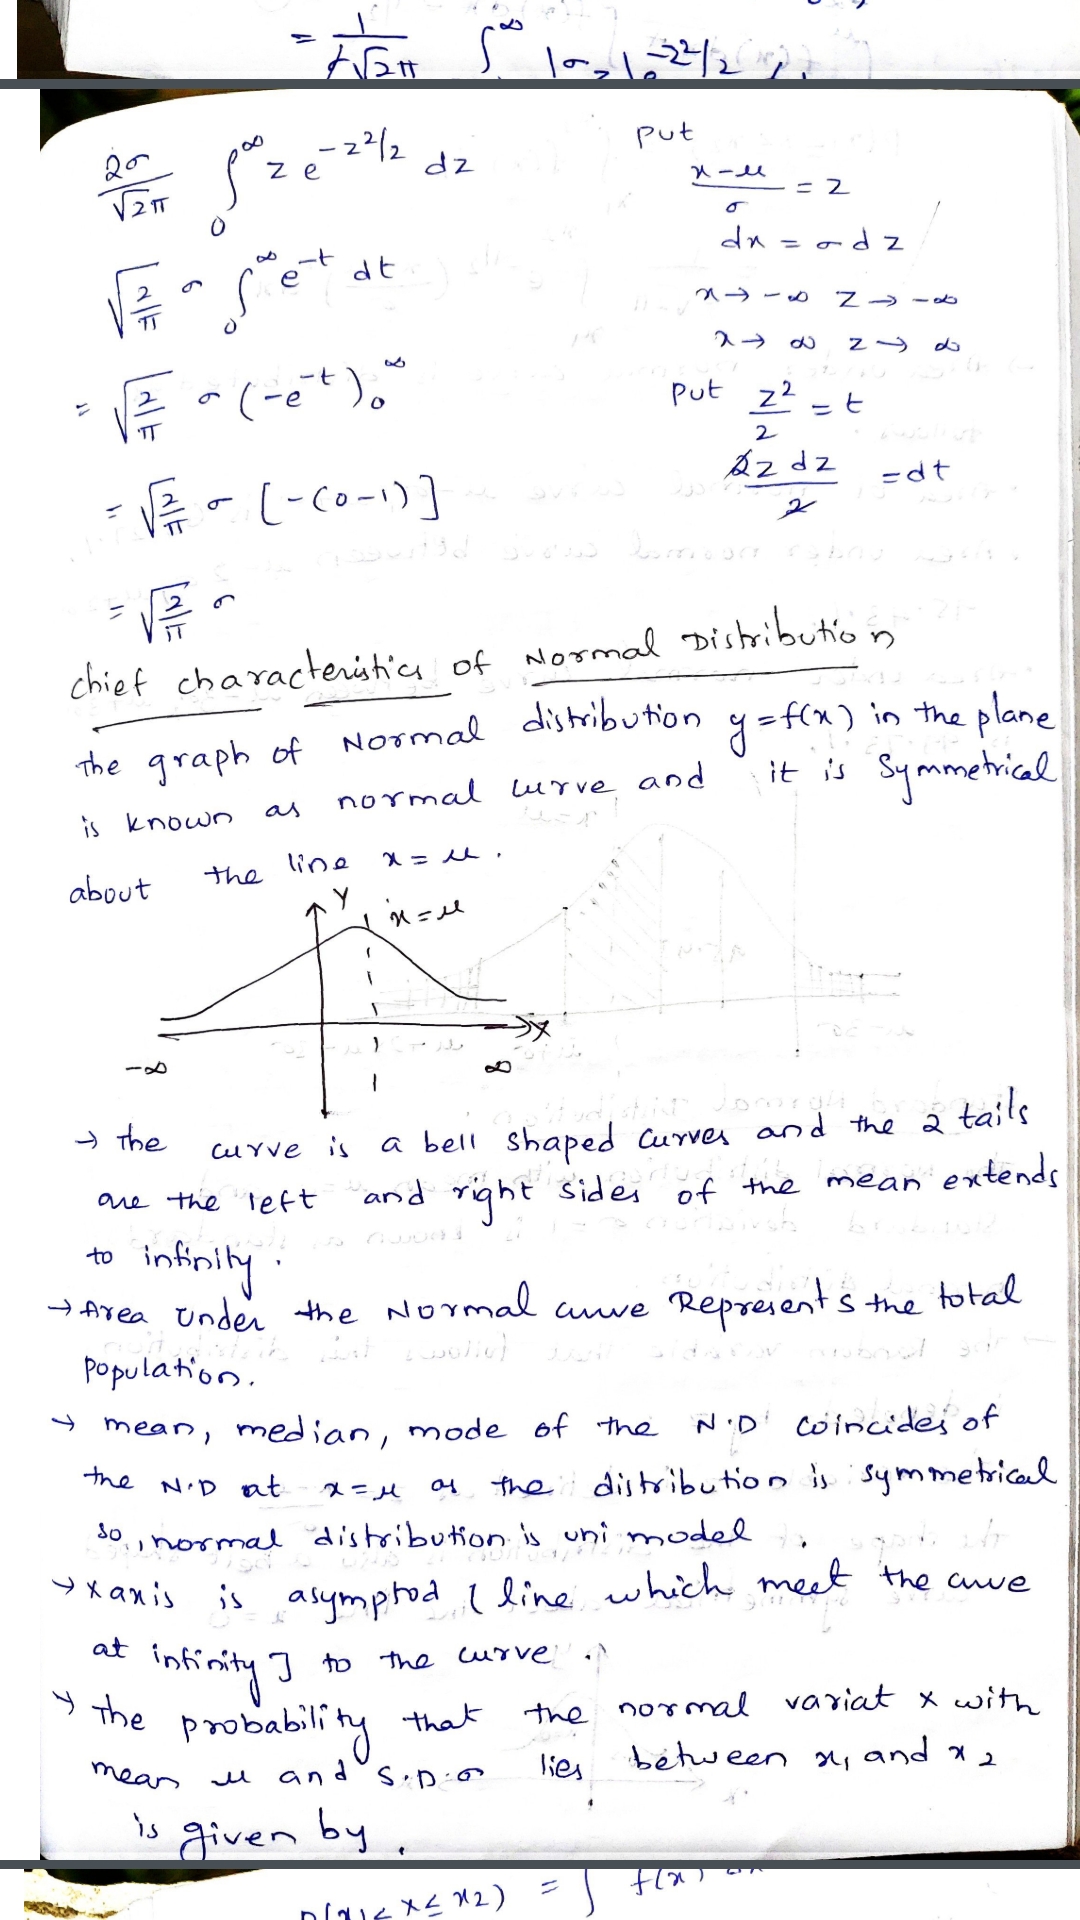 = 1/√2π ∫^∞ |σz| e^-z²/2
2σ/√2π ∫₀^∞ z e^-z²/2 dz
put
x-μ/σ = z
dx = σ dz
√2/π σ ∫₀^∞ e^-t dt
x → -∞ z → -∞
x → ∞ z → ∞
= √2/π σ (-e^-t)₀^∞
Put z²/2 = t
2z dz/2 = dt
= √2/π σ [-(0-1)]
= √2/π σ
chief characteristics of Normal Distribution
the graph of Normal distribution y=f(x) in the plane
is known as normal curve and it is Symmetrical
about the line x=μ.
Y
x=μ
X
-∞ ∞
→ The curve is a bell shaped curves and the 2 tails
are the left and right sides of the mean extends
to infinity.
→ Area under the Normal curve Represents the total
population.
→ mean, median, mode of the N.D coincides of
the N.D at x=μ as the distribution is symmetrical
so, normal distribution is uni model.
→ x axis is asymptod [line which meet the curve
at infinity] to the curve.
→ The probability that the normal variat x with
mean μ and S.D σ lies between x₁ and x₂
is given by.
p(x₁≤ x ≤ x₂) = ∫ f(x) dx